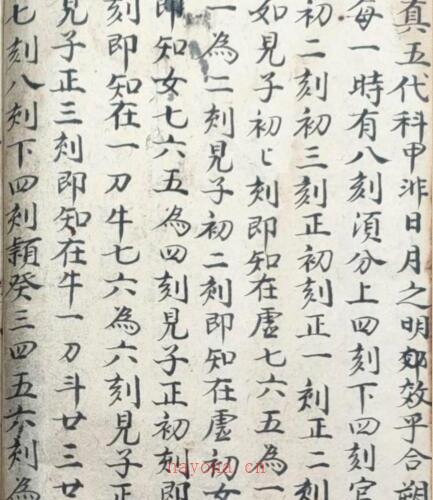 真五代科甲非日月之明郊效乎合朔
每一時有八刻須分上四刻下四刻官
初二刻初三刻正初刻正一刻正二刻
如見子初乚刻即知在虛七六五為一
一為二刻見子初二刻即知在虛初女
即知女七六五為四刻見子正初刻即
刻即知在一刀牛七六為六刻見子正
見子正三刻即知在牛一刀斗廿三廿
七刻八刻下四刻顈癸三四五六刻為
hayoha cn